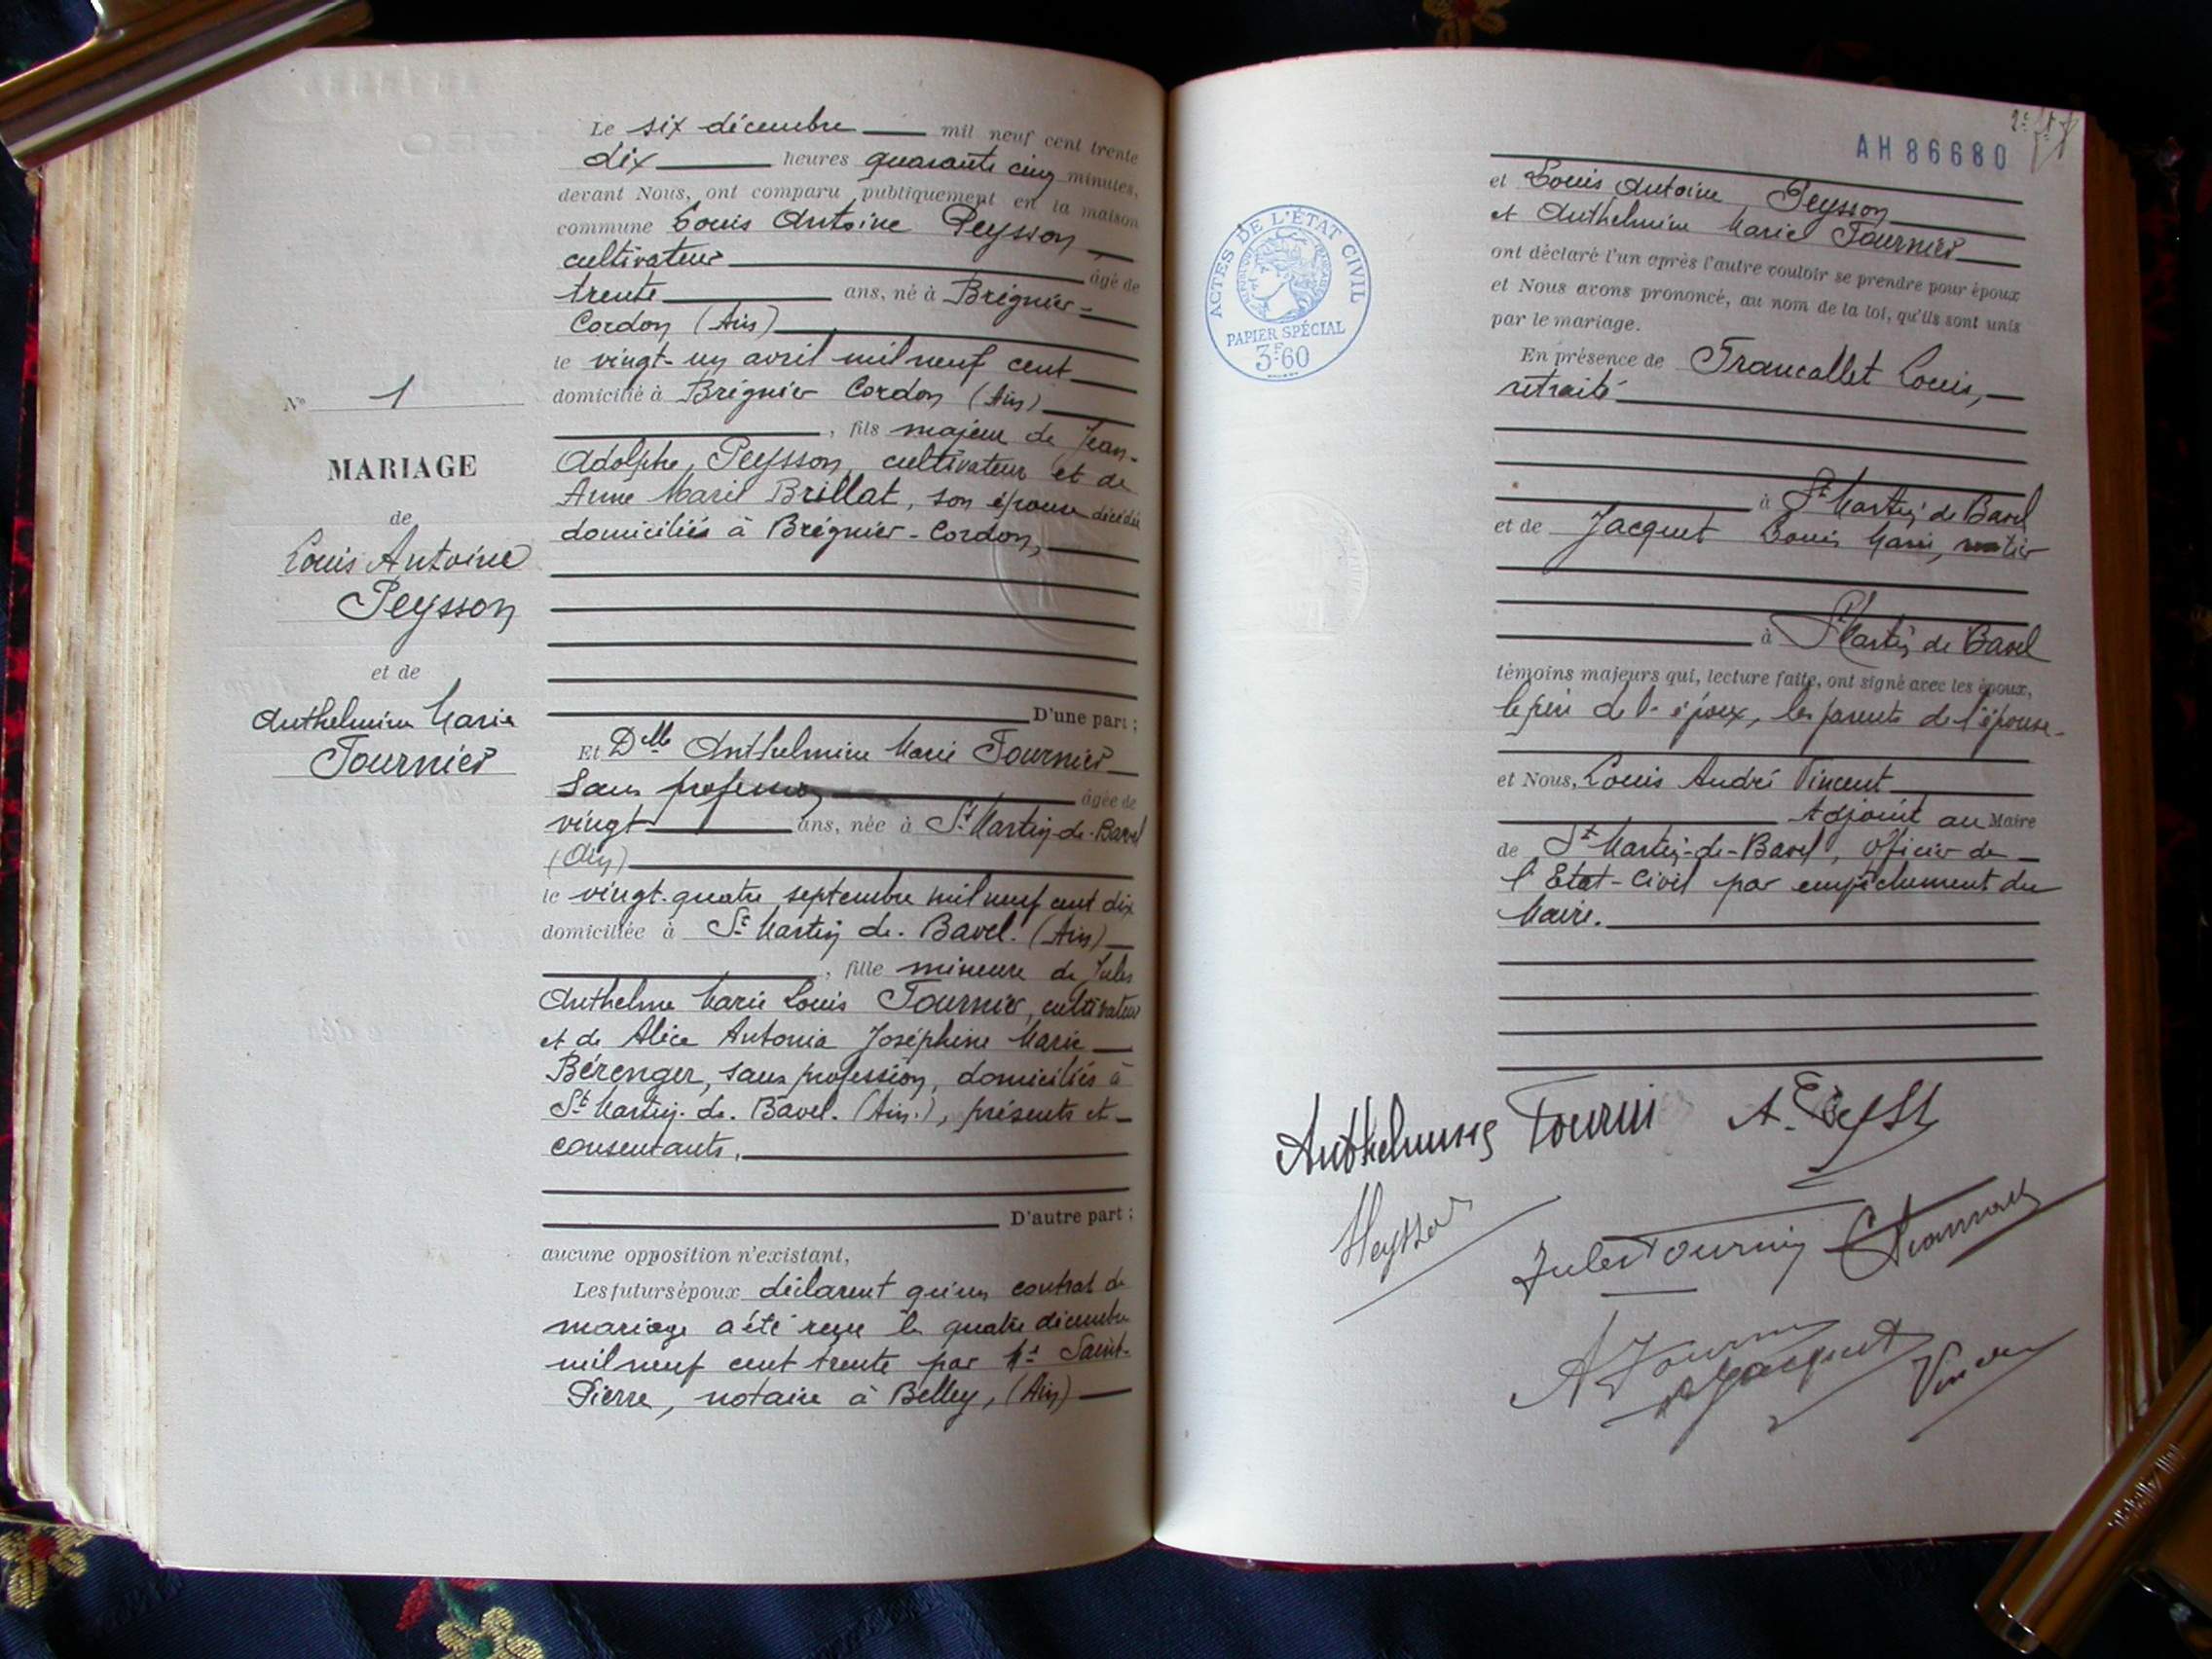 Le six décembre mil neuf cent trente
dix heures quarante cinq minutes,
devant Nous, ont comparu publiquement en la maison
commune Louis Antoine Peysson
cultivateur âgé de
trente ans, né à Brégnier-
Cordon (Ain)
le vingt-un avril mil neuf cent
domicilié à Brégnier Cordon (Ain)
, fils majeur de Jean-
Adolphe, Peysson, cultivateur et de
Anne Marie Brillat, son épouse décédée
domiciliés à Brégnier-Cordon,
D'une part ;
Et Dlle Anthelmine Marie Tournier
sans profession âgée de
vingt ans, née à St Martin-de-Bavel
(Ain)
le vingt-quatre septembre mil neuf cent dix
domiciliée à St Martin de-Bavel. (Ain)
, fille mineure de Jules
Anthelme Marie Louis Tournier, cultivateur
et de Alice Antonia Joséphine Marie
Bérenger, sans profession, domiciliés à
St Martin-de-Bavel. (Ain.), présents et
consentants,
D'autre part ;
aucune opposition n'existant,
Les futurs époux déclarent qu'un contrat de
mariage a été reçu le quatre décembre
mil neuf cent trente par Me Saint-
Pierre, notaire à Belley, (Ain)
No 1
MARIAGE
de
Louis Antoine
Peysson
et de
Anthelmine Marie
Tournier
AH 86680
ACTES DE L'ÉTAT CIVIL
PAPIER SPÉCIAL
3F60
et Louis Antoine Peysson
et Anthelmine Marie Tournier
ont déclaré l'un après l'autre vouloir se prendre pour époux
et Nous avons prononcé, au nom de la loi, qu'ils sont unis
par le mariage.
En présence de Francallet Louis,
retraité
à St Martin de Bavel
et de Jacquet Louis Marie,
à St Martin de Bavel
témoins majeurs qui, lecture faite, ont signé avec les époux,
le père de l'époux, les parents de l'épouse
et Nous, Louis André Vincent
Adjoint au Maire
de St Martin-de-Bavel, Officier de
l'Etat-Civil par empêchement du
Maire.
Jules Tournier
A Tournier
Jacquet
Vincent